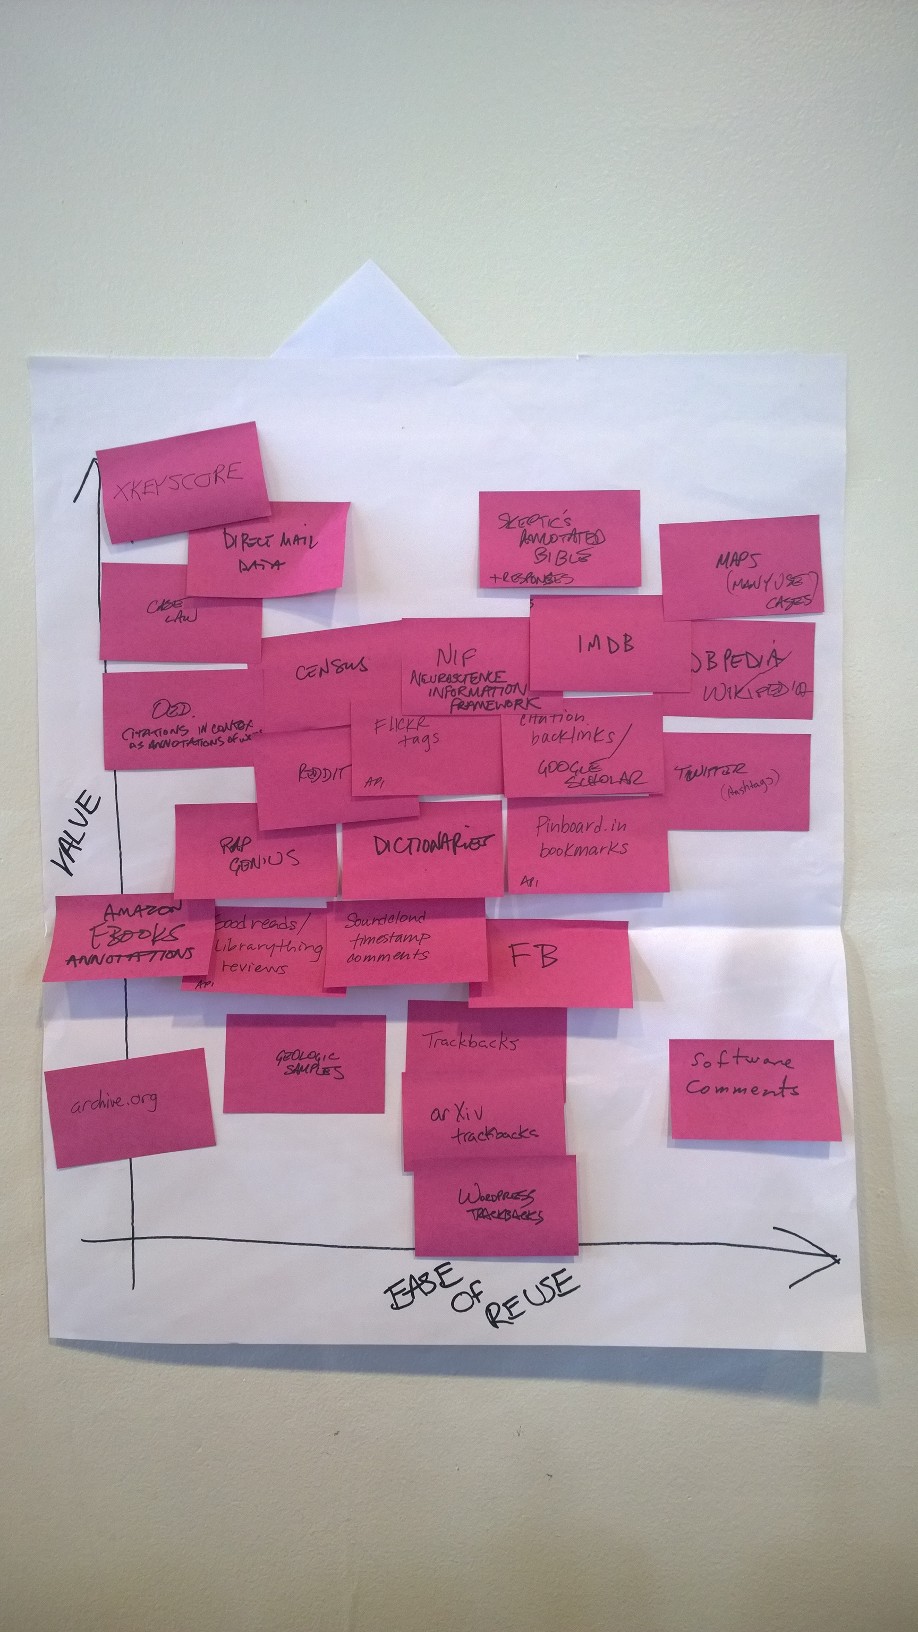 XKEYSCORE
DIRECT MAIL
DATA
SKEPTIC'S
ANNOTATED
BIBLE
+RESPONSES
MAPS
(MANY USE
CASES)
CASE
LAW
CENSUS
NIF
NEUROSCIENCE
INFORMATION
FRAMEWORK
IMDB
DBPEDIA/
WIKIPEDIA
OED.
CITATIONS IN CONTEXT
AS ANNOTATIONS OF
REDDIT
FLICKR
tags
API
citation
backlinks/
GOOGLE
SCHOLAR
TWITTER
(Hashtags)
VALUE
RAP
GENIUS
DICTIONARIES
Pinboard.in
bookmarks
API
AMAZON
EBOOKS
ANNOTATIONS
Goodreads/
Librarything
reviews
API
Soundcloud
timestamp
comments
FB
archive.org
GEOLOGIC
SAMPLES
Trackbacks
arXiv
trackbacks
WORDPRESS
TRACKBACKS
Software
Comments
EASE
OF
REUSE